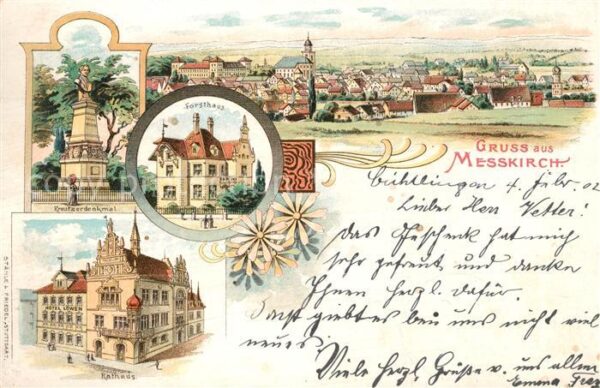 Forsthaus
GRUSS aus
MESSKIRCH.
Kreutzerdenkmal
HOTEL LÖWEN
Rathaus
STÄHLE & FRIEDEL, STUTTGART.
4. Febr. 02
Lieber Herr Vetter!
Das Geschenk hat mich
sehr gefreut und danke
Ihnen herzl. dafür.
Sonst giebt es bei uns nicht viel
neues.
Viele herzl. Grüße v. uns allen
Emma